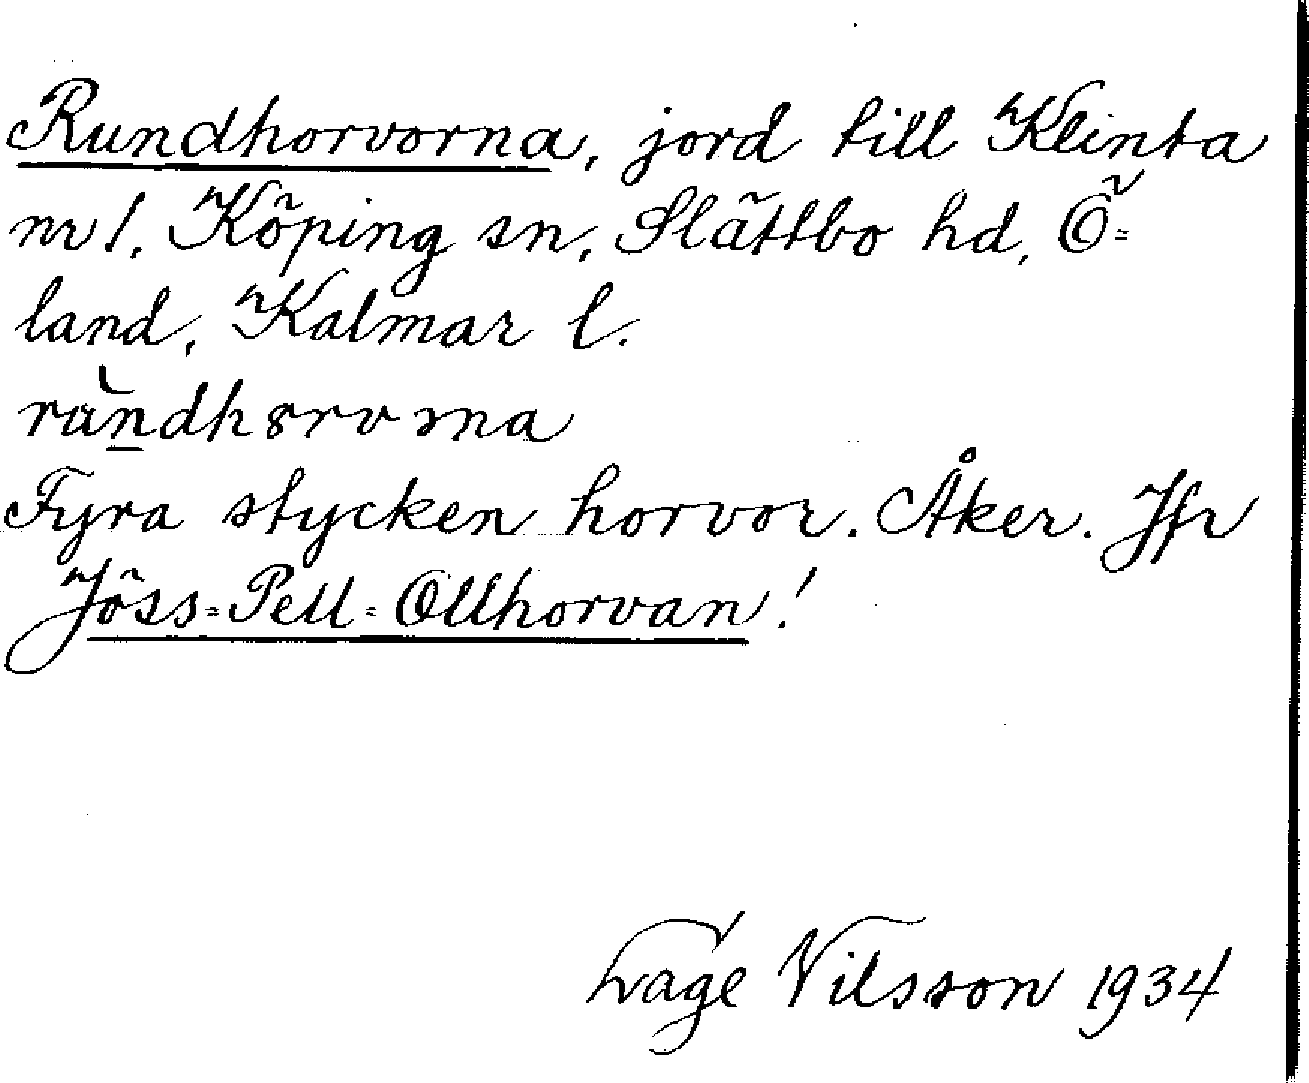 Rundhorvorna, jord till Klinta
nr 1, Köping sn, Slättbo hd, Ö-
land, Kalmar l.
Fyra stycken horvor. Åker. Jfr
Jöss-Pell-Ollhorvan!
Lage Nilsson 1934